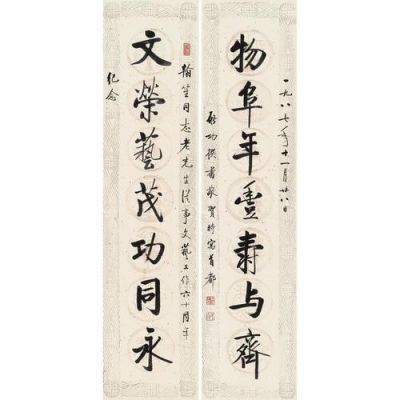 一九八七年十一月廿八日
物阜年豐寿与齊
啓功撰書敬賀時寓首都
翰笙同志老先生從事文藝工作六十周年
文榮藝茂功同永
纪念